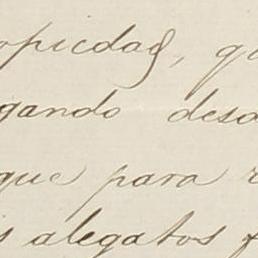 opiedad, qu
gando desd
que para r
s alegatos f